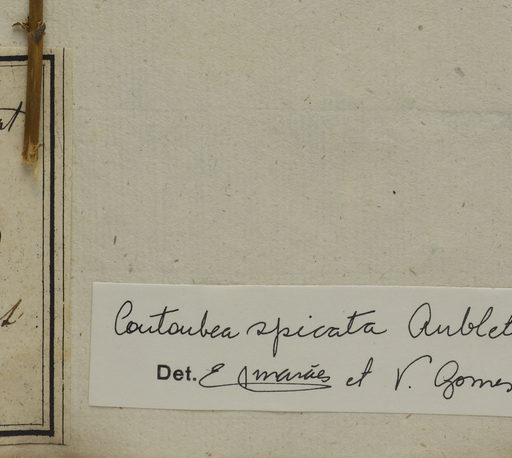 Coutoubea spicata Aublet
Det. E Gmarães et V. Gomes